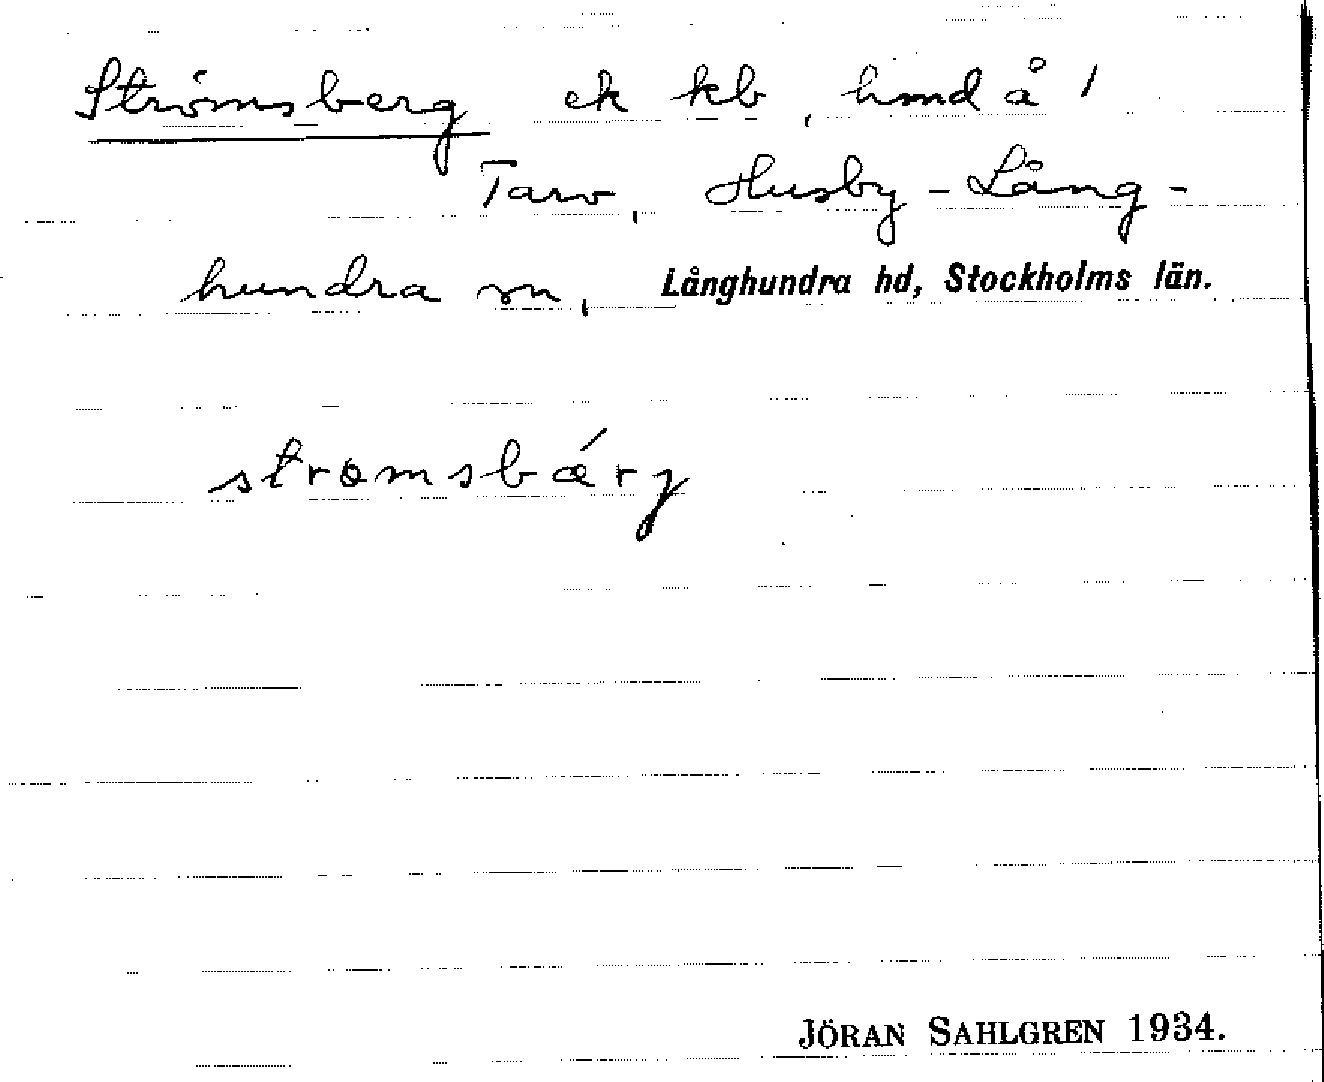 Strömsberg ek kb, hmd å 1
Tarv, Husby-Lång-
hundra sn, Långhundra hd, Stockholms län.
strømsbærg
JÖRAN SAHLGREN 1934.